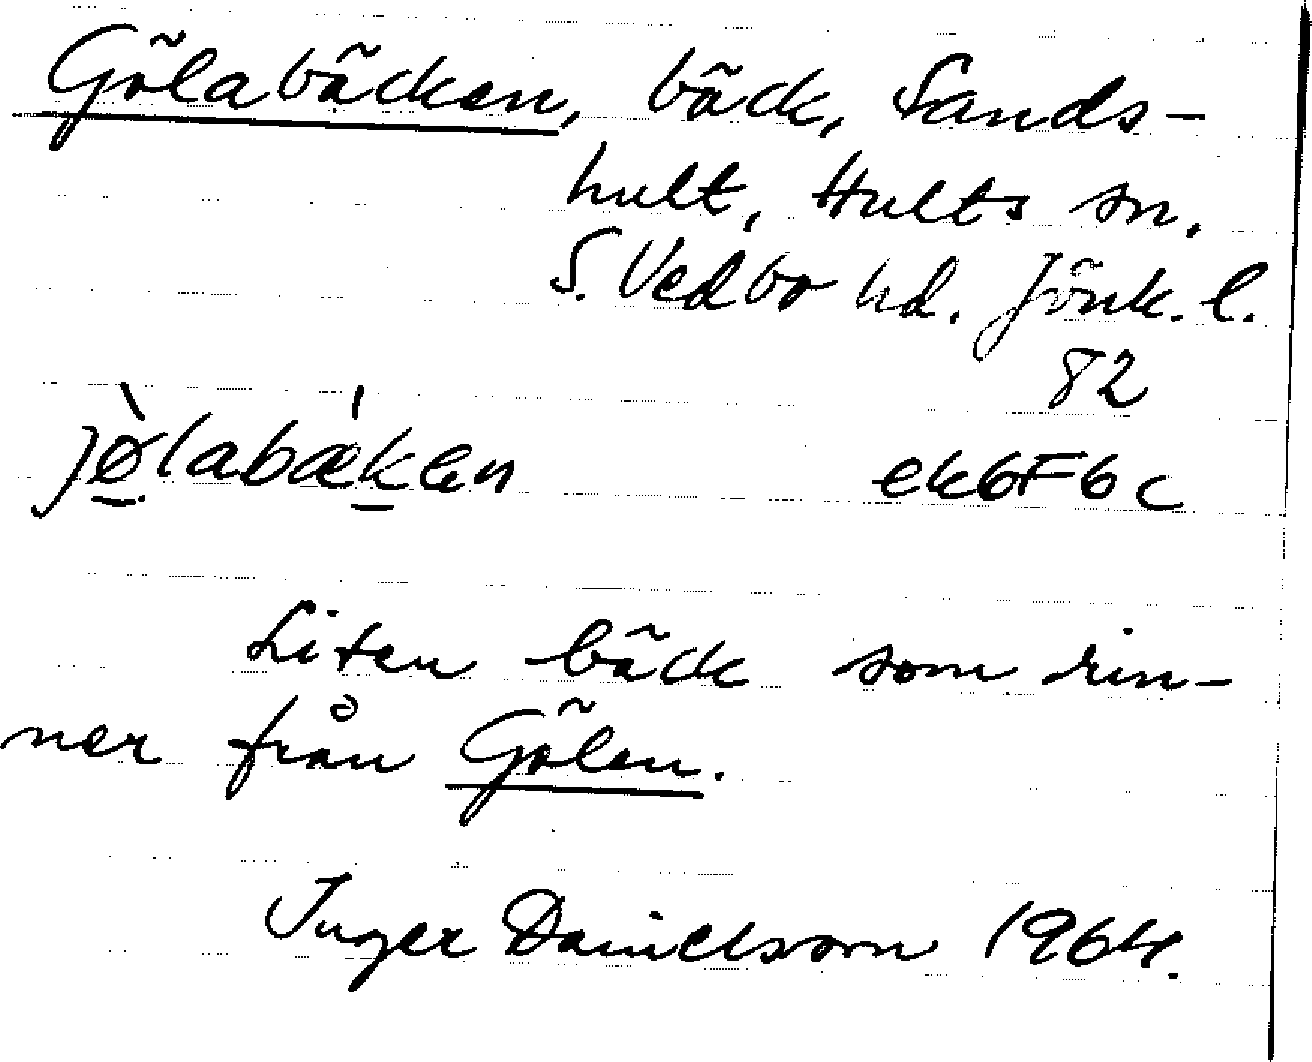 Gölabäcken, bäck, Sands-
hult, Hults sn.
S. Vedbo hd. Jönk. l.
82
jø̀labæ̍ken ek6F6c
Liten bäck som rin-
ner från Gölen.
Inger Danielsson 1964.